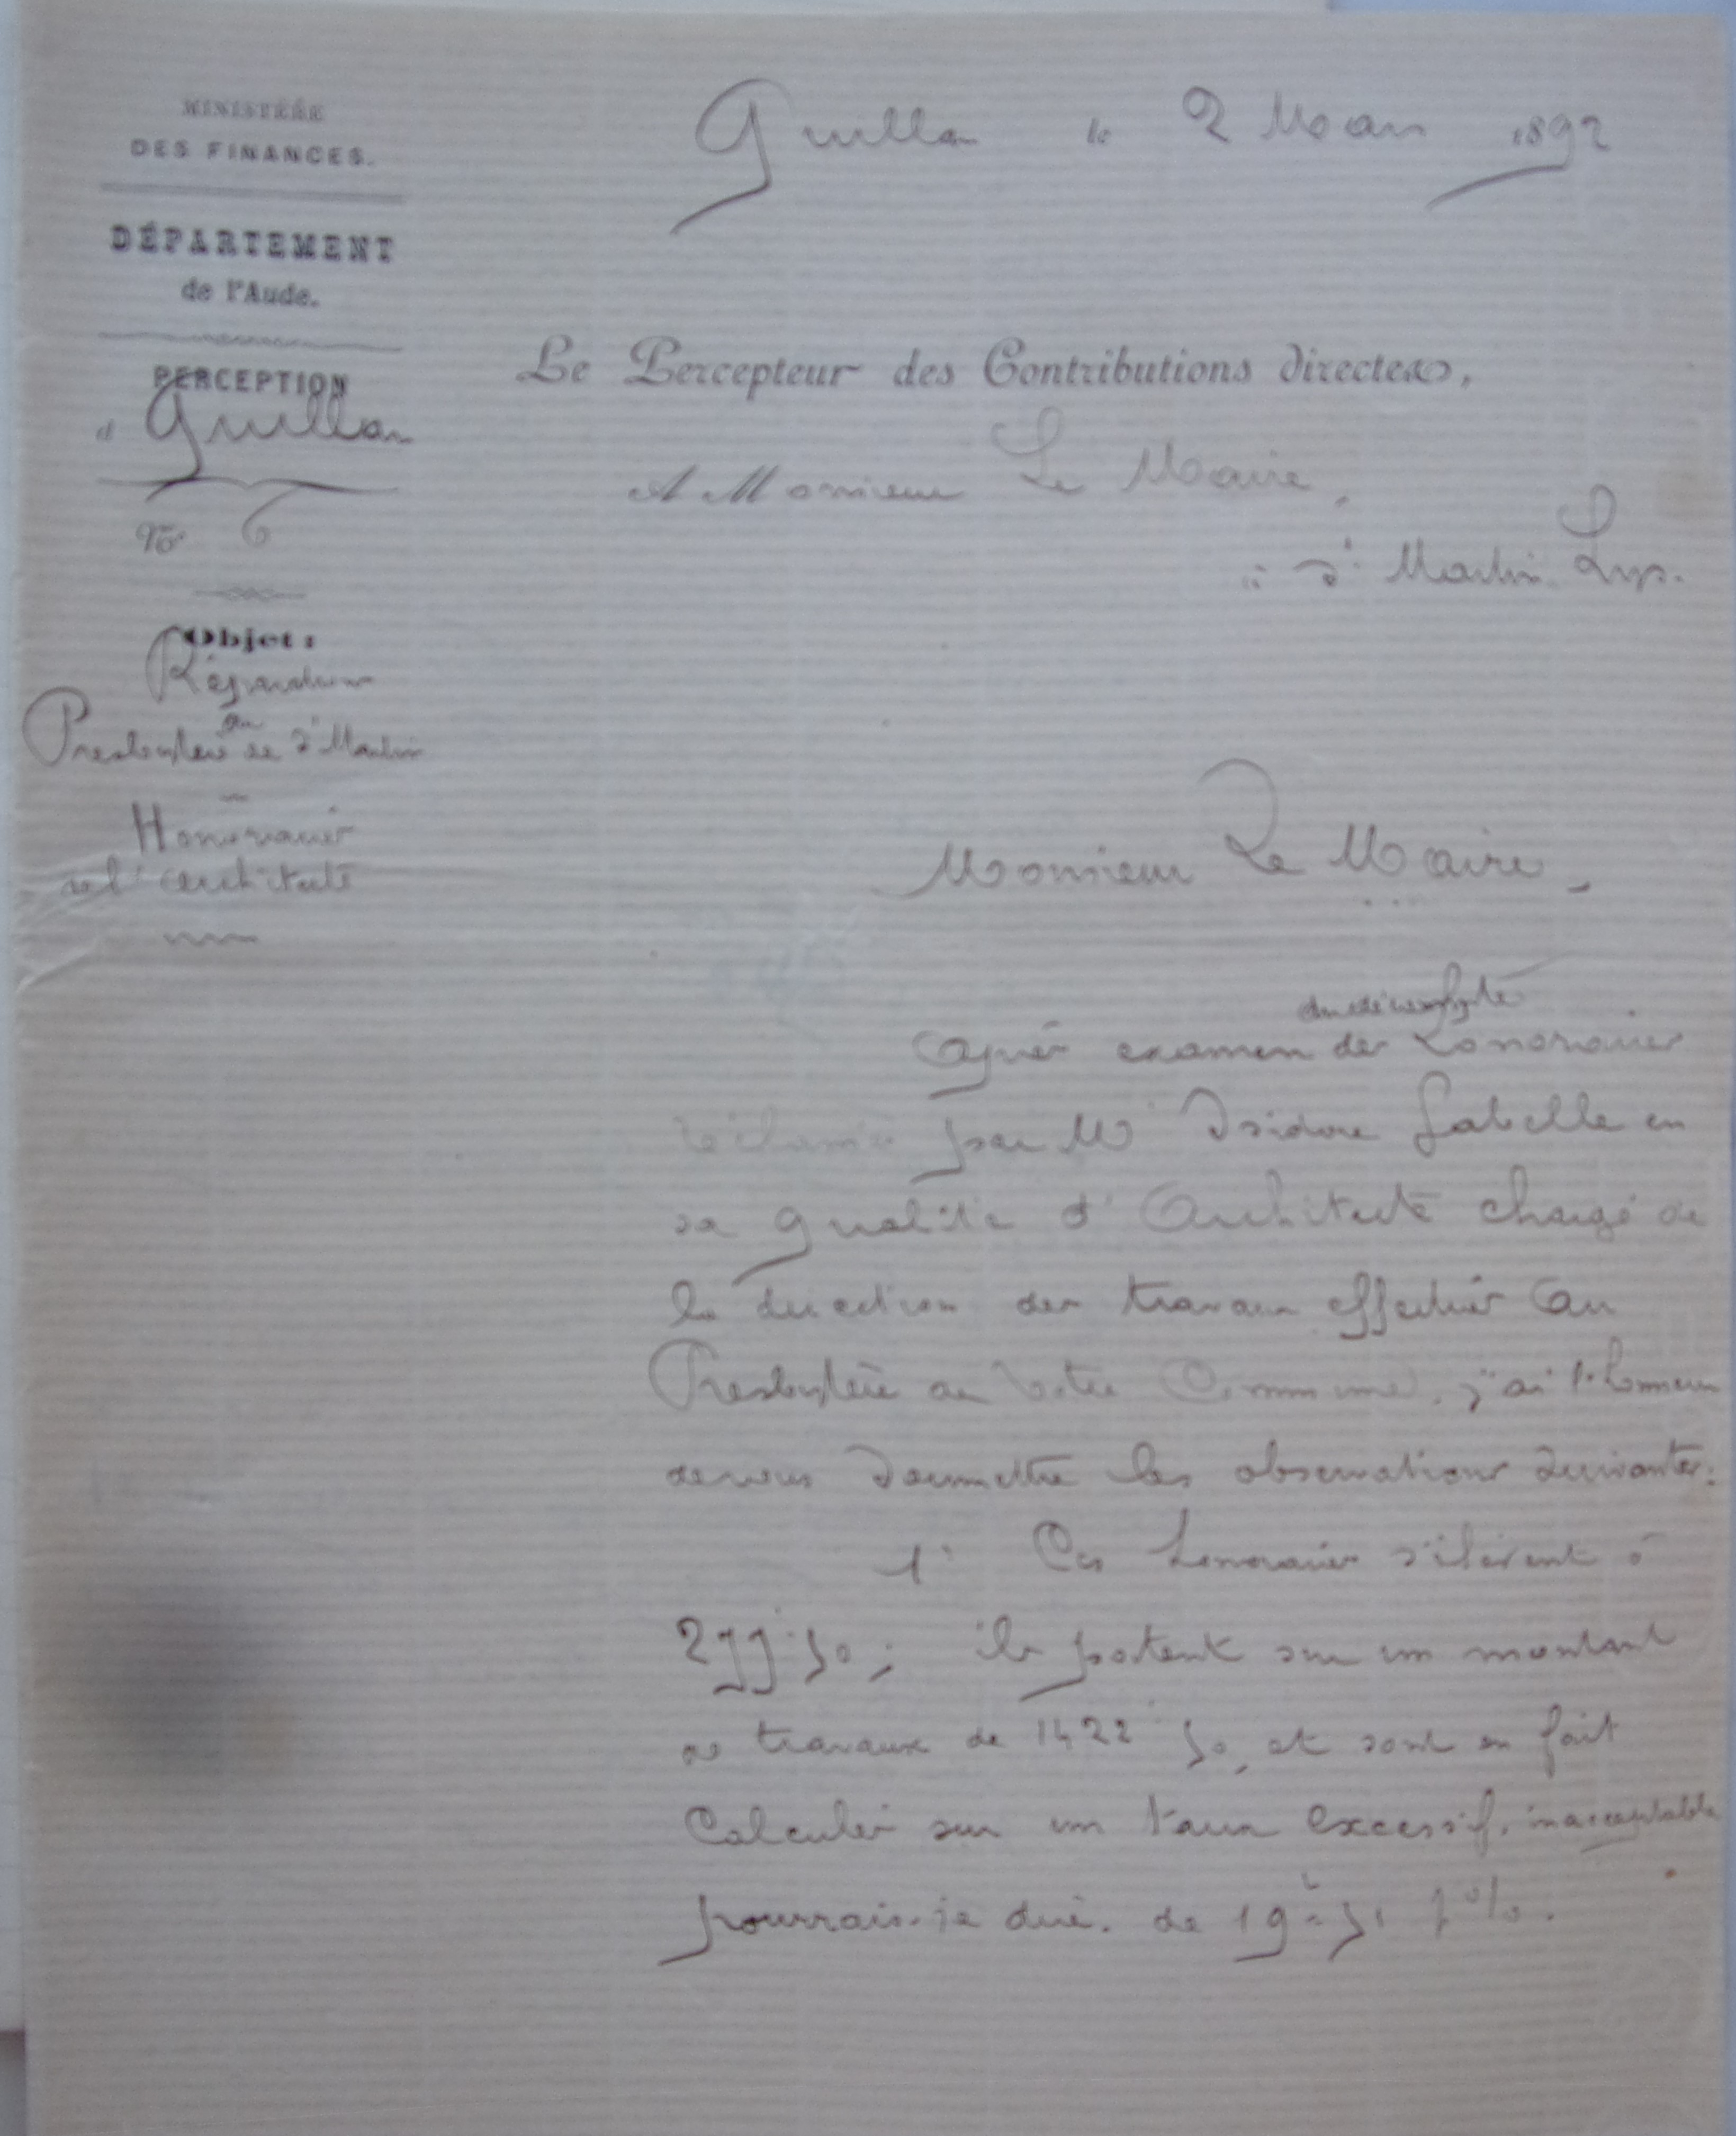 MINISTÈRE
DES FINANCES.
DÉPARTEMENT
de l'Aude.
PERCEPTION
d Quillan
No 6
Objet :
Réparations
au
Presbytère de St Martin
Honoraires
de l'architecte
Quillan le 2 Mars 1892
Le Percepteur des Contributions directes,
A Monsieur Le Maire,
à St Martin Lys.
Monsieur Le Maire,
du décompte
Après examen des honoraires
réclamés par Mr Isidore Labelle en
sa qualité d'Architecte chargé de
la direction des travaux effectués au
Presbytère de votre Commune, j'ai l'honneur
de vous soumettre les observations suivantes:
1° Ces honoraires s'élèvent à
277f 50; ils portent sur un montant
de travaux de 1422f 50, et sont en fait
calculés sur un taux excessif, inacceptable
pourrais-je dire, de 19f 51 %.